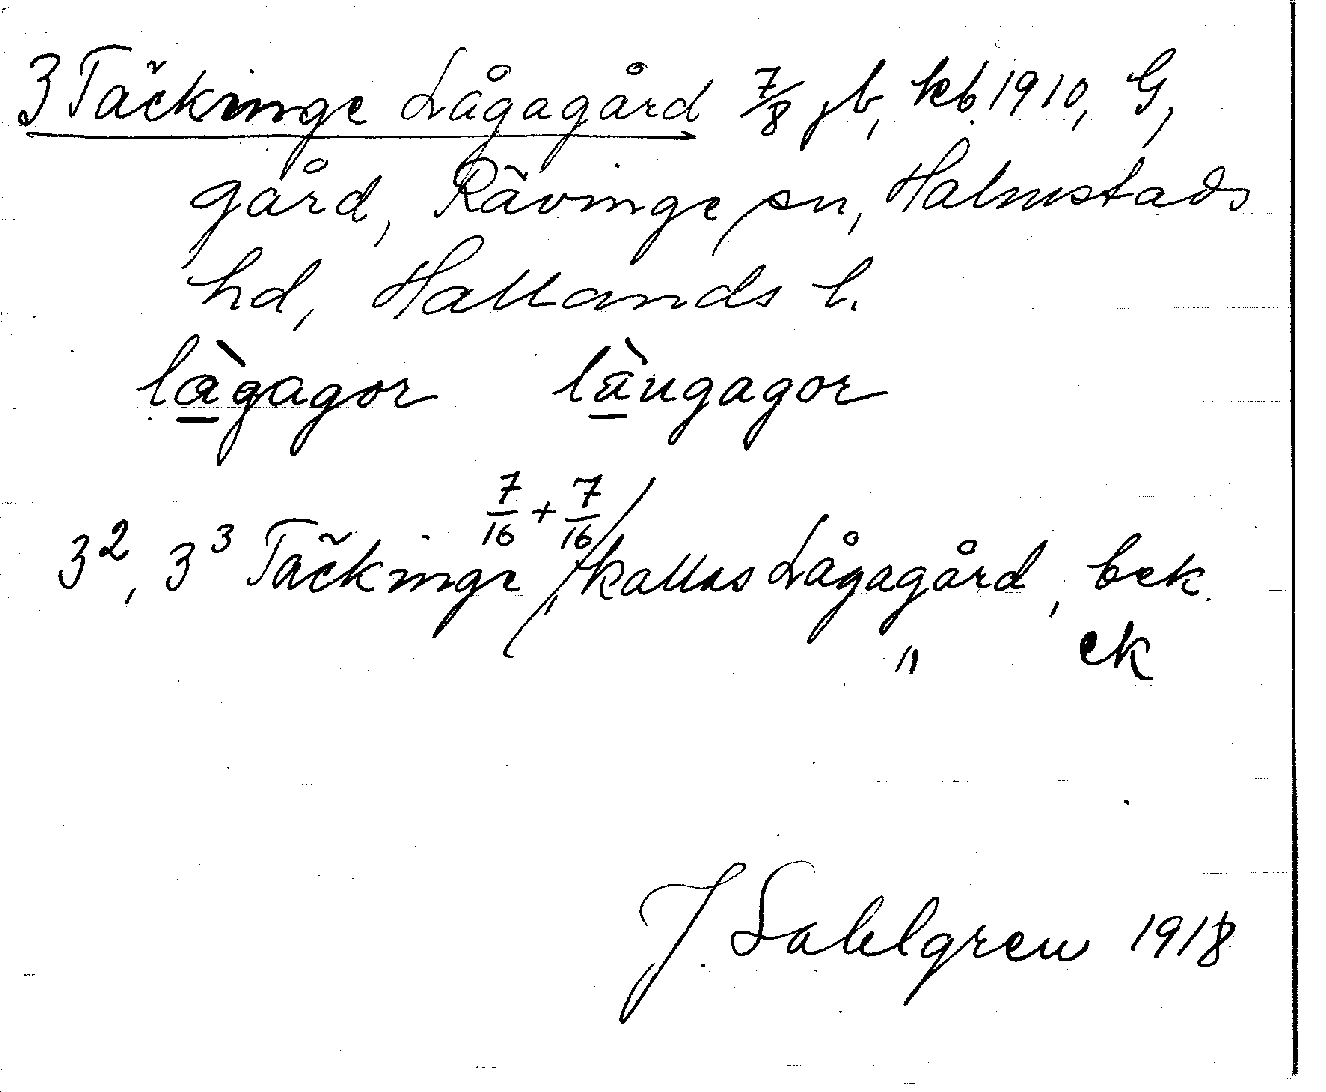 3 Täckinge Lågagård 7/8 jb, kb. 1910, G,
gård, Rävinge sn, Halmstads
hd, Hallands l.
làgagor làugagor
3², 3³ Täckinge, 7/16 + 7/16 kallas Lågagård, bek.
" ek
J. Sahlgren 1918